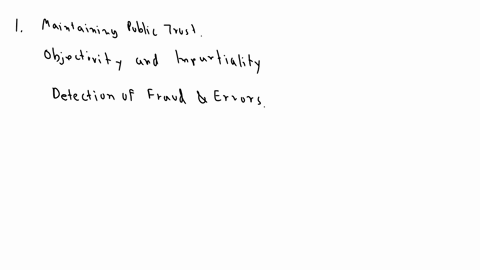 1. Maintaining Public Trust.
Objectivity and Impartiality
Detection of Fraud & Errors.